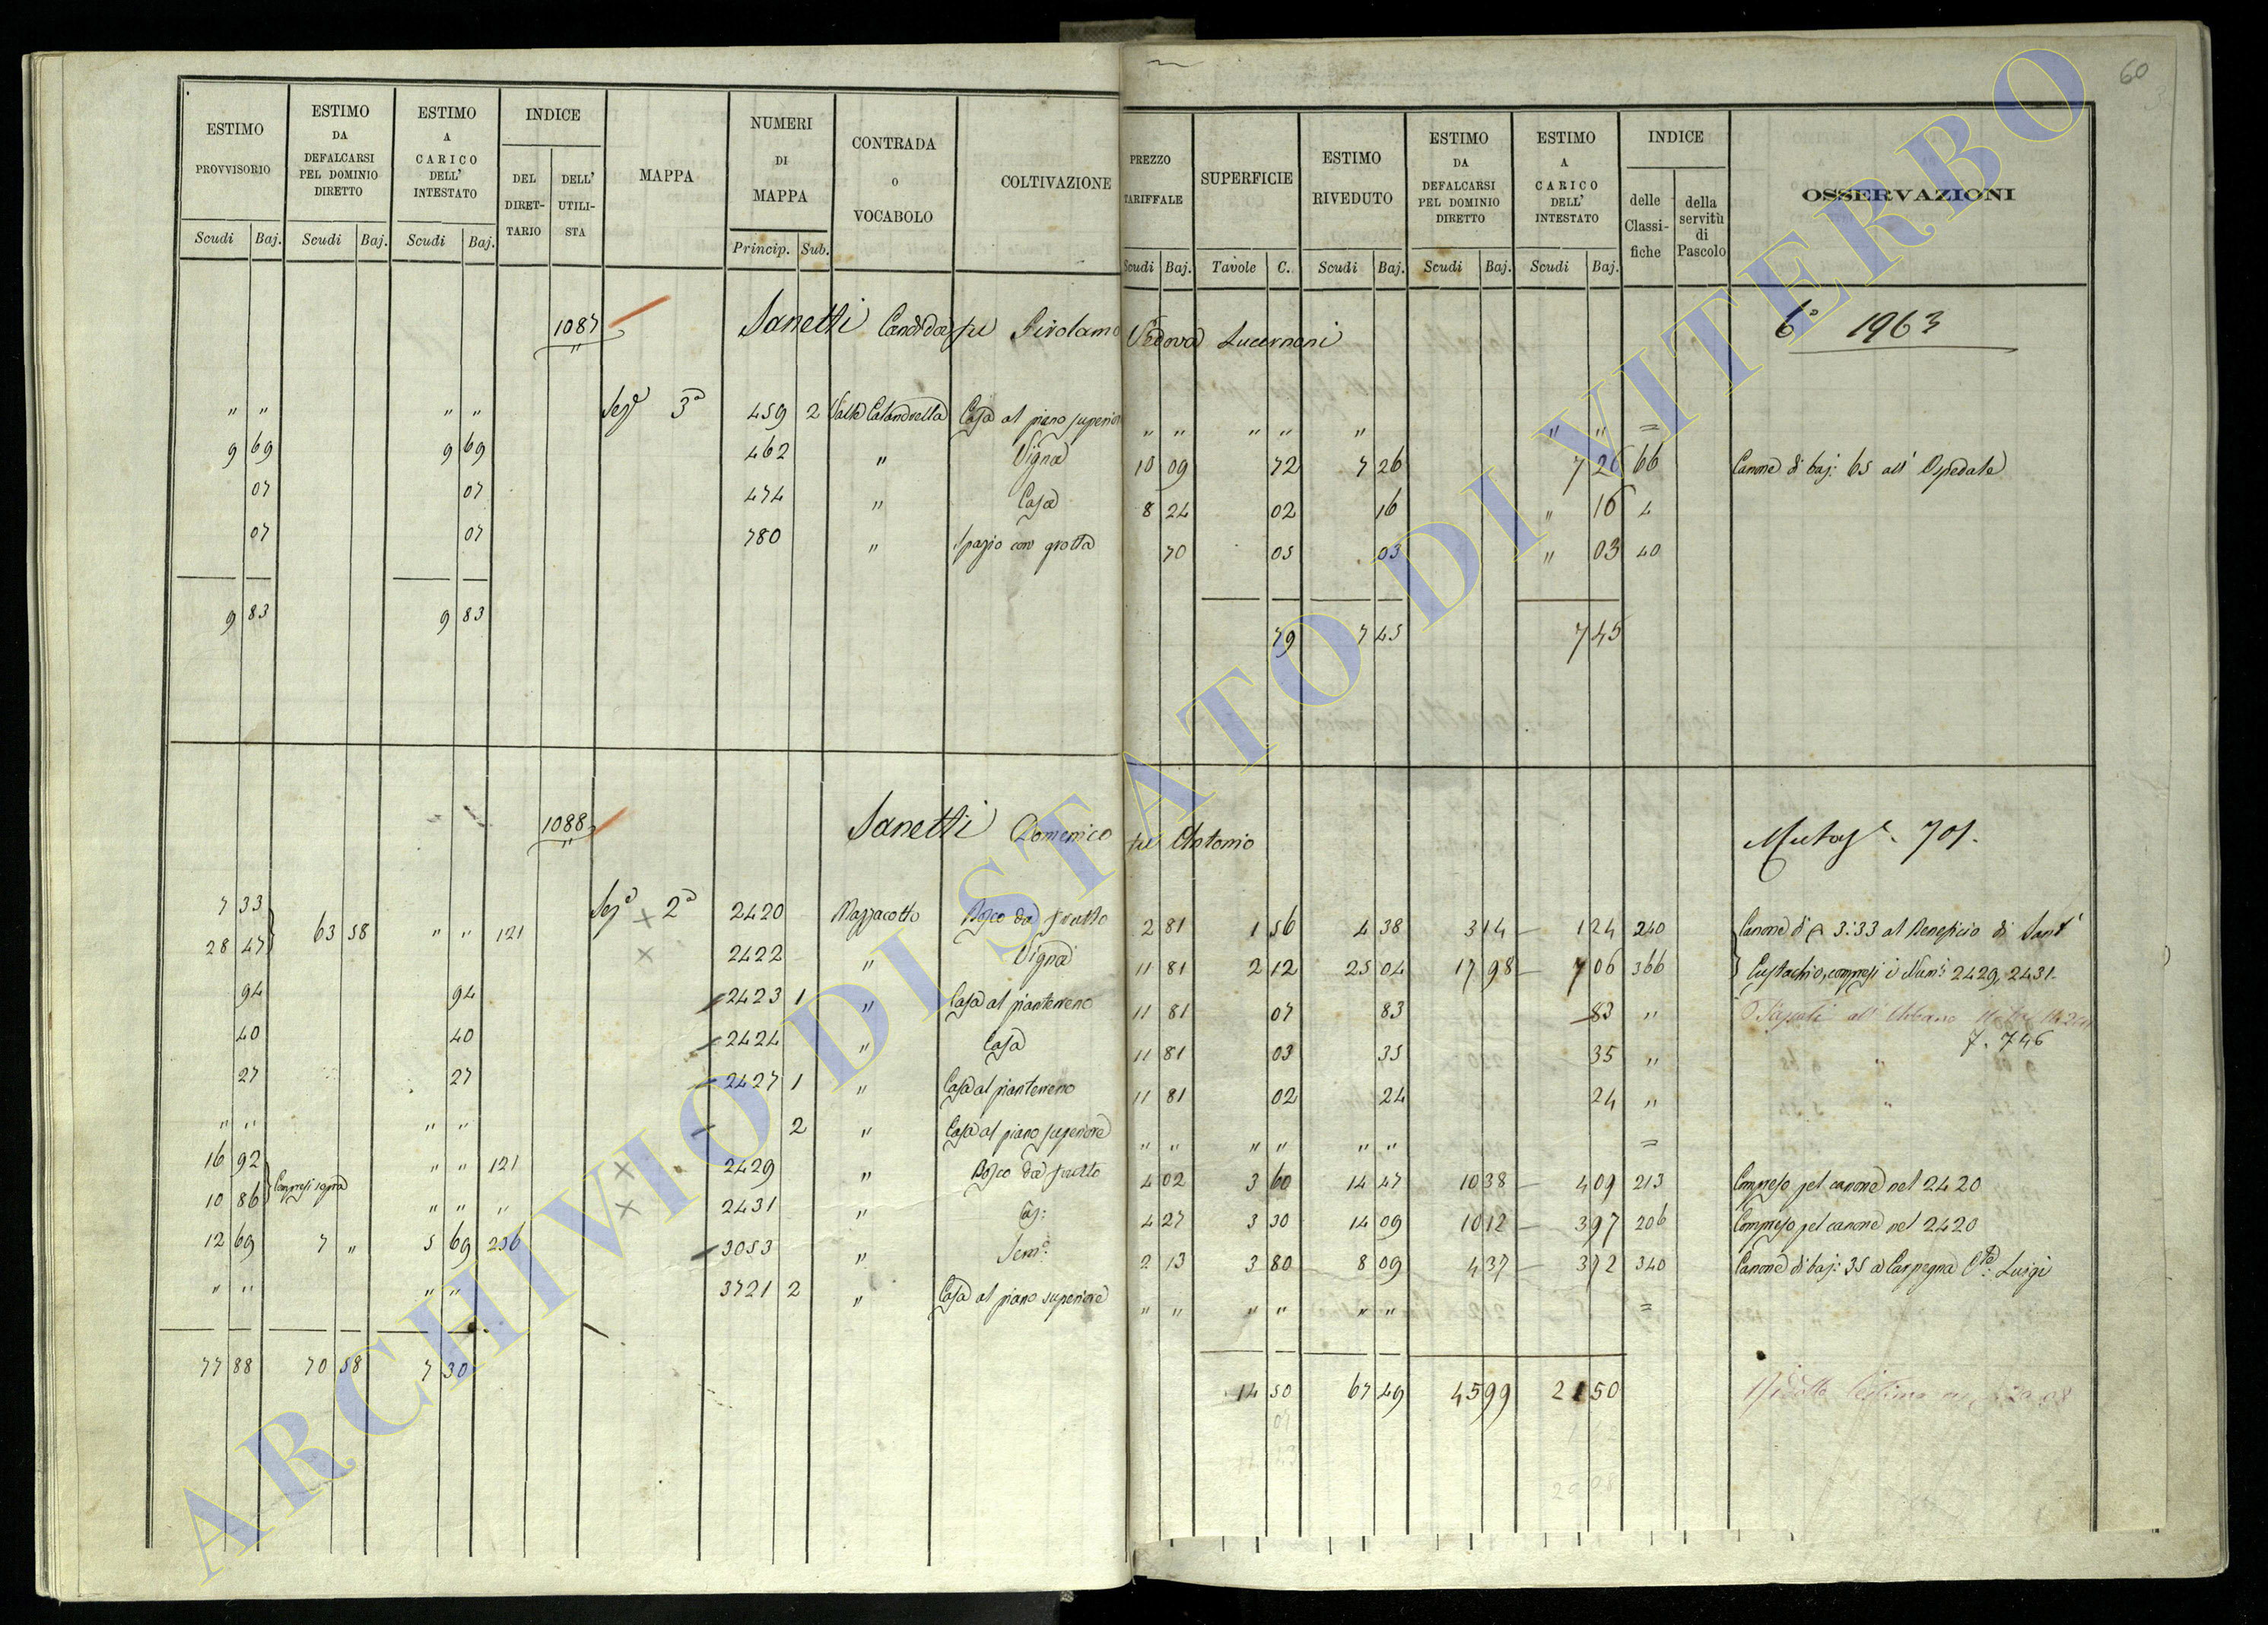 60
ESTIMO PROVVISORIO
ESTIMO DA DEFALCARSI PEL DOMINIO DIRETTO
ESTIMO A CARICO DELL' INTESTATO
INDICE
DEL DIRET- TARIO
DELL' UTILI- STA
MAPPA
NUMERI DI MAPPA
CONTRADA O VOCABOLO
COLTIVAZIONE
PREZZO TARIFFALE
SUPERFICIE
ESTIMO RIVEDUTO
ESTIMO DA DEFALCARSI PEL DOMINIO DIRETTO
ESTIMO A CARICO DELL' INTESTATO
INDICE
delle Classi- fiche
della servitù di Pascolo
OSSERVAZIONI
Scudi Baj. Scudi Baj. Scudi Baj. Princip. Sub.
Scudi Baj. Tavole C. Scudi Baj. Scudi Baj. Scudi Baj.
1087 Sanetti Candida fu Girolamo Vedova Lucernoni 6° 1963
" " " " Sezᵉ 3ª 459 2 Valle Calandrella Casa al piano superiore " " " " " " " =
9 69 9 69 462 " Vigna 10 09 72 7 26 7 26 66 Canone di baj: 65 all' Ospedale
07 07 474 " Casa 8 24 02 16 " 16 4
07 07 780 " Spazio con grotta 70 05 03 " 03 40
9 83 9 83 79 7 45 7 45
1088 Sanetti Domenico fu Antonio Mutazᵉ. 701.
7 33 63 58 " " 121 Sezᵉ 2ª 2420 Mazzacotto Bosco da frutto 2 81 1 56 4 38 3 14 1 24 240 Canone di 3:33 al Beneficio di Sant'
28 47 2422 " Vigna 11 81 2 12 25 04 17 98 7 06 366 Eustachio, compresi i Num: 2429, 2431
94 94 2423 1 " Casa al pianterreno 11 81 07 83 83 "
40 40 2424 " Casa 11 81 03 35 35 " 7. 746
27 27 2427 1 " Casa al pianterreno 11 81 02 24 24 "
" " " " 2 " Casa al piano superiore " " " " " " =
16 92 Compresi sopra " " 121 2429 " Bosco da frutto 4 02 3 60 14 47 10 38 4 09 213 Compreso pel canone nel 2420
10 86 " " " 2431 " 4 27 3 30 14 09 10 12 3 97 206 Compreso pel canone nel 2420
12 69 7 " 5 69 256 3053 " Semᵒ: 2 13 3 80 8 09 4 37 3 72 340 Canone di baj: 35 a Carpegna Cte: Luigi
" " " " 3721 2 " Casa al piano superiore " " " " " " =
77 88 70 58 7 30 14 50 67 49 45 99 21 50
ARCHIVIO DI STATO DI VITERBO